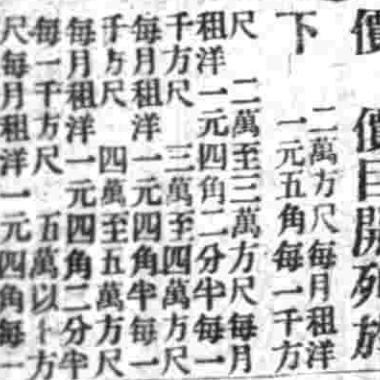 價 價目開列於
下 二萬方尺每月租洋
一元五角每一千方
尺 二萬至三萬方尺每月
租洋一元四角二分半每一
千方尺 三萬至四萬方尺
每月租洋 一元四角半每一
千方尺 四萬至五萬方尺
每月租洋一元四角二分半
每一千方尺 五萬以上方
尺每月租洋一元四角每一